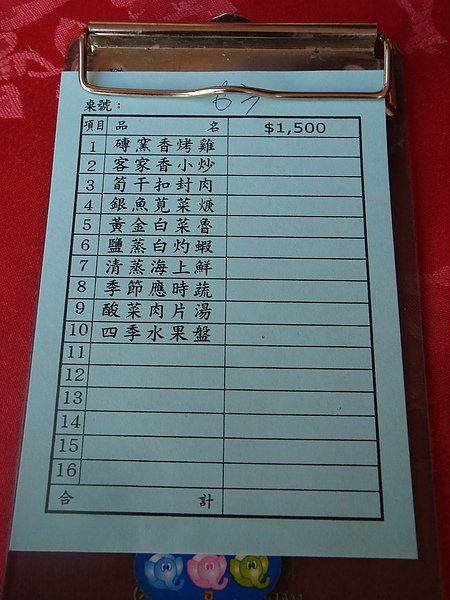 桌號：
項目 品 名 $1,500
1 磚窯香烤雞
2 客家香小炒
3 筍干扣封肉
4 銀魚莧菜焿
5 黃金白菜魯
6 鹽蒸白灼蝦
7 清蒸海上鮮
8 季節應時蔬
9 酸菜肉片湯
10 四季水果盤
11
12
13
14
15
16
合 計